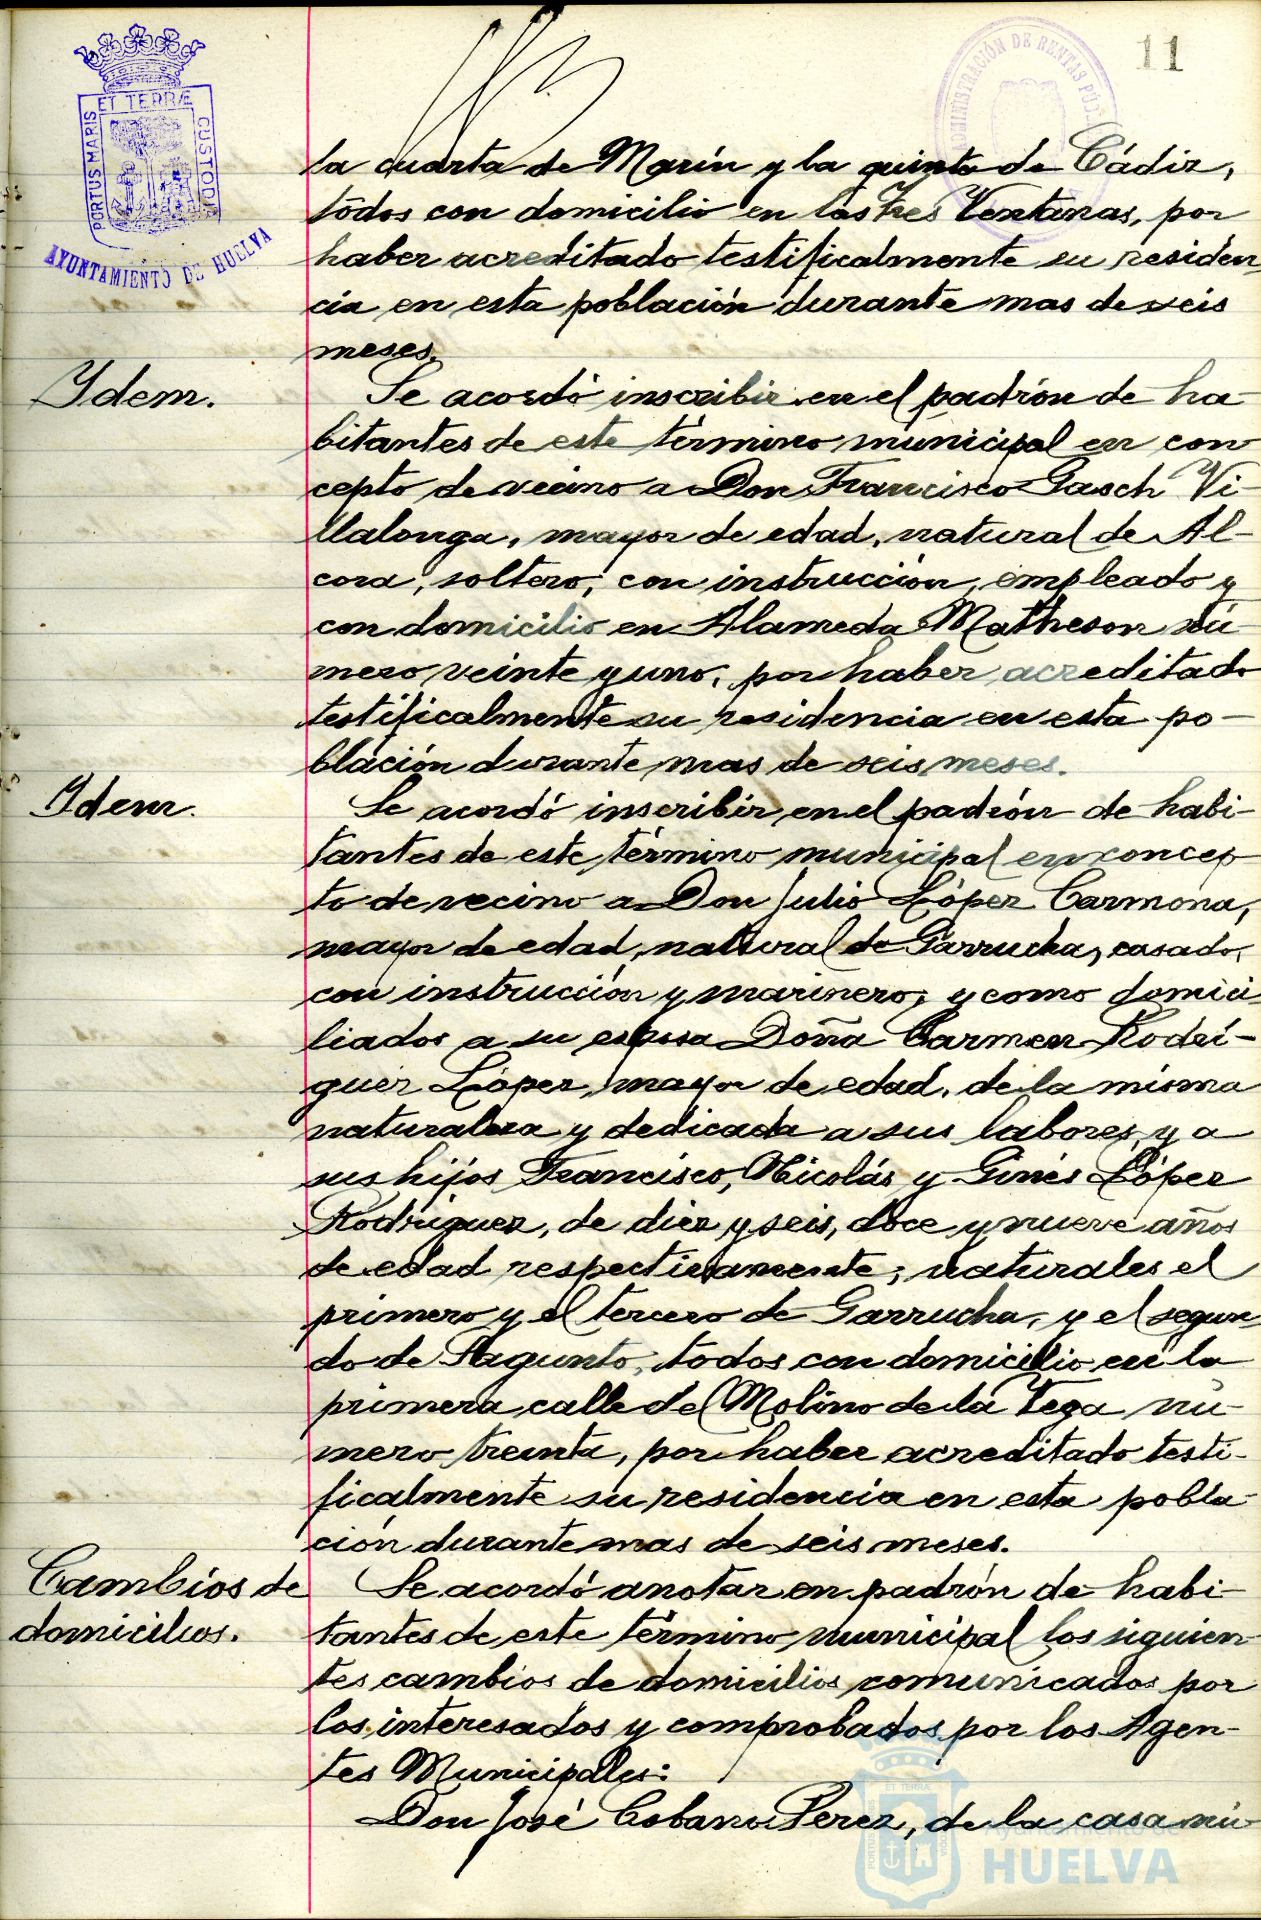 11
ET TERRÆ
PORTUS MARIS
CUSTODIA
AYUNTAMIENTO DE HUELVA
ADMINISTRACIÓN DE RENTAS PÚBLICAS
la cuarta de Marín y la quinta de Cádiz,
todos con domicilio en las Tres Ventanas, por
haber acreditado testificalmente su residen-
cia en esta población durante mas de seis
meses.
Ydem.
Se acordó inscribir en el padrón de ha-
bitantes de este término municipal en con-
cepto de vecino a Don Francisco Gasch Vi-
llalonga, mayor de edad, natural de Al-
cora, soltero, con instrucción, empleado y
con domicilio en Alameda Matheson nú-
mero veinte y uno, por haber acreditado
testificalmente su residencia en esta po-
blación durante mas de seis meses.
Ydem.
Se acordó inscribir en el padrón de habi-
tantes de este término municipal en concep-
to de vecino a Don Julio López Carmona,
mayor de edad, natural de Garrucha, casado,
con instrucción y marinero, y como domici-
liados a su esposa Doña Carmen Rodrí-
guez López, mayor de edad, de la misma
naturaleza y dedicada a sus labores, y a
sus hijos Francisco, Nicolás y Ginés López
Rodríguez, de diez y seis, doce y nueve años
de edad respectivamente, naturales el
primero y el tercero de Garrucha, y el segun-
do de Sagunto, todos con domicilio en la
primera calle del Molino de la Vega nú-
mero treinta, por haber acreditado testi-
ficalmente su residencia en esta pobla-
ción durante mas de seis meses.
Cambios de
domicilios.
Se acordó anotar en padrón de habi-
tantes de este término municipal los siguien-
tes cambios de domicilios comunicados por
los interesados y comprobados por los Agen-
tes Municipales:
Don José Cobano Perez, de la casa nú-
Ayuntamiento de
HUELVA